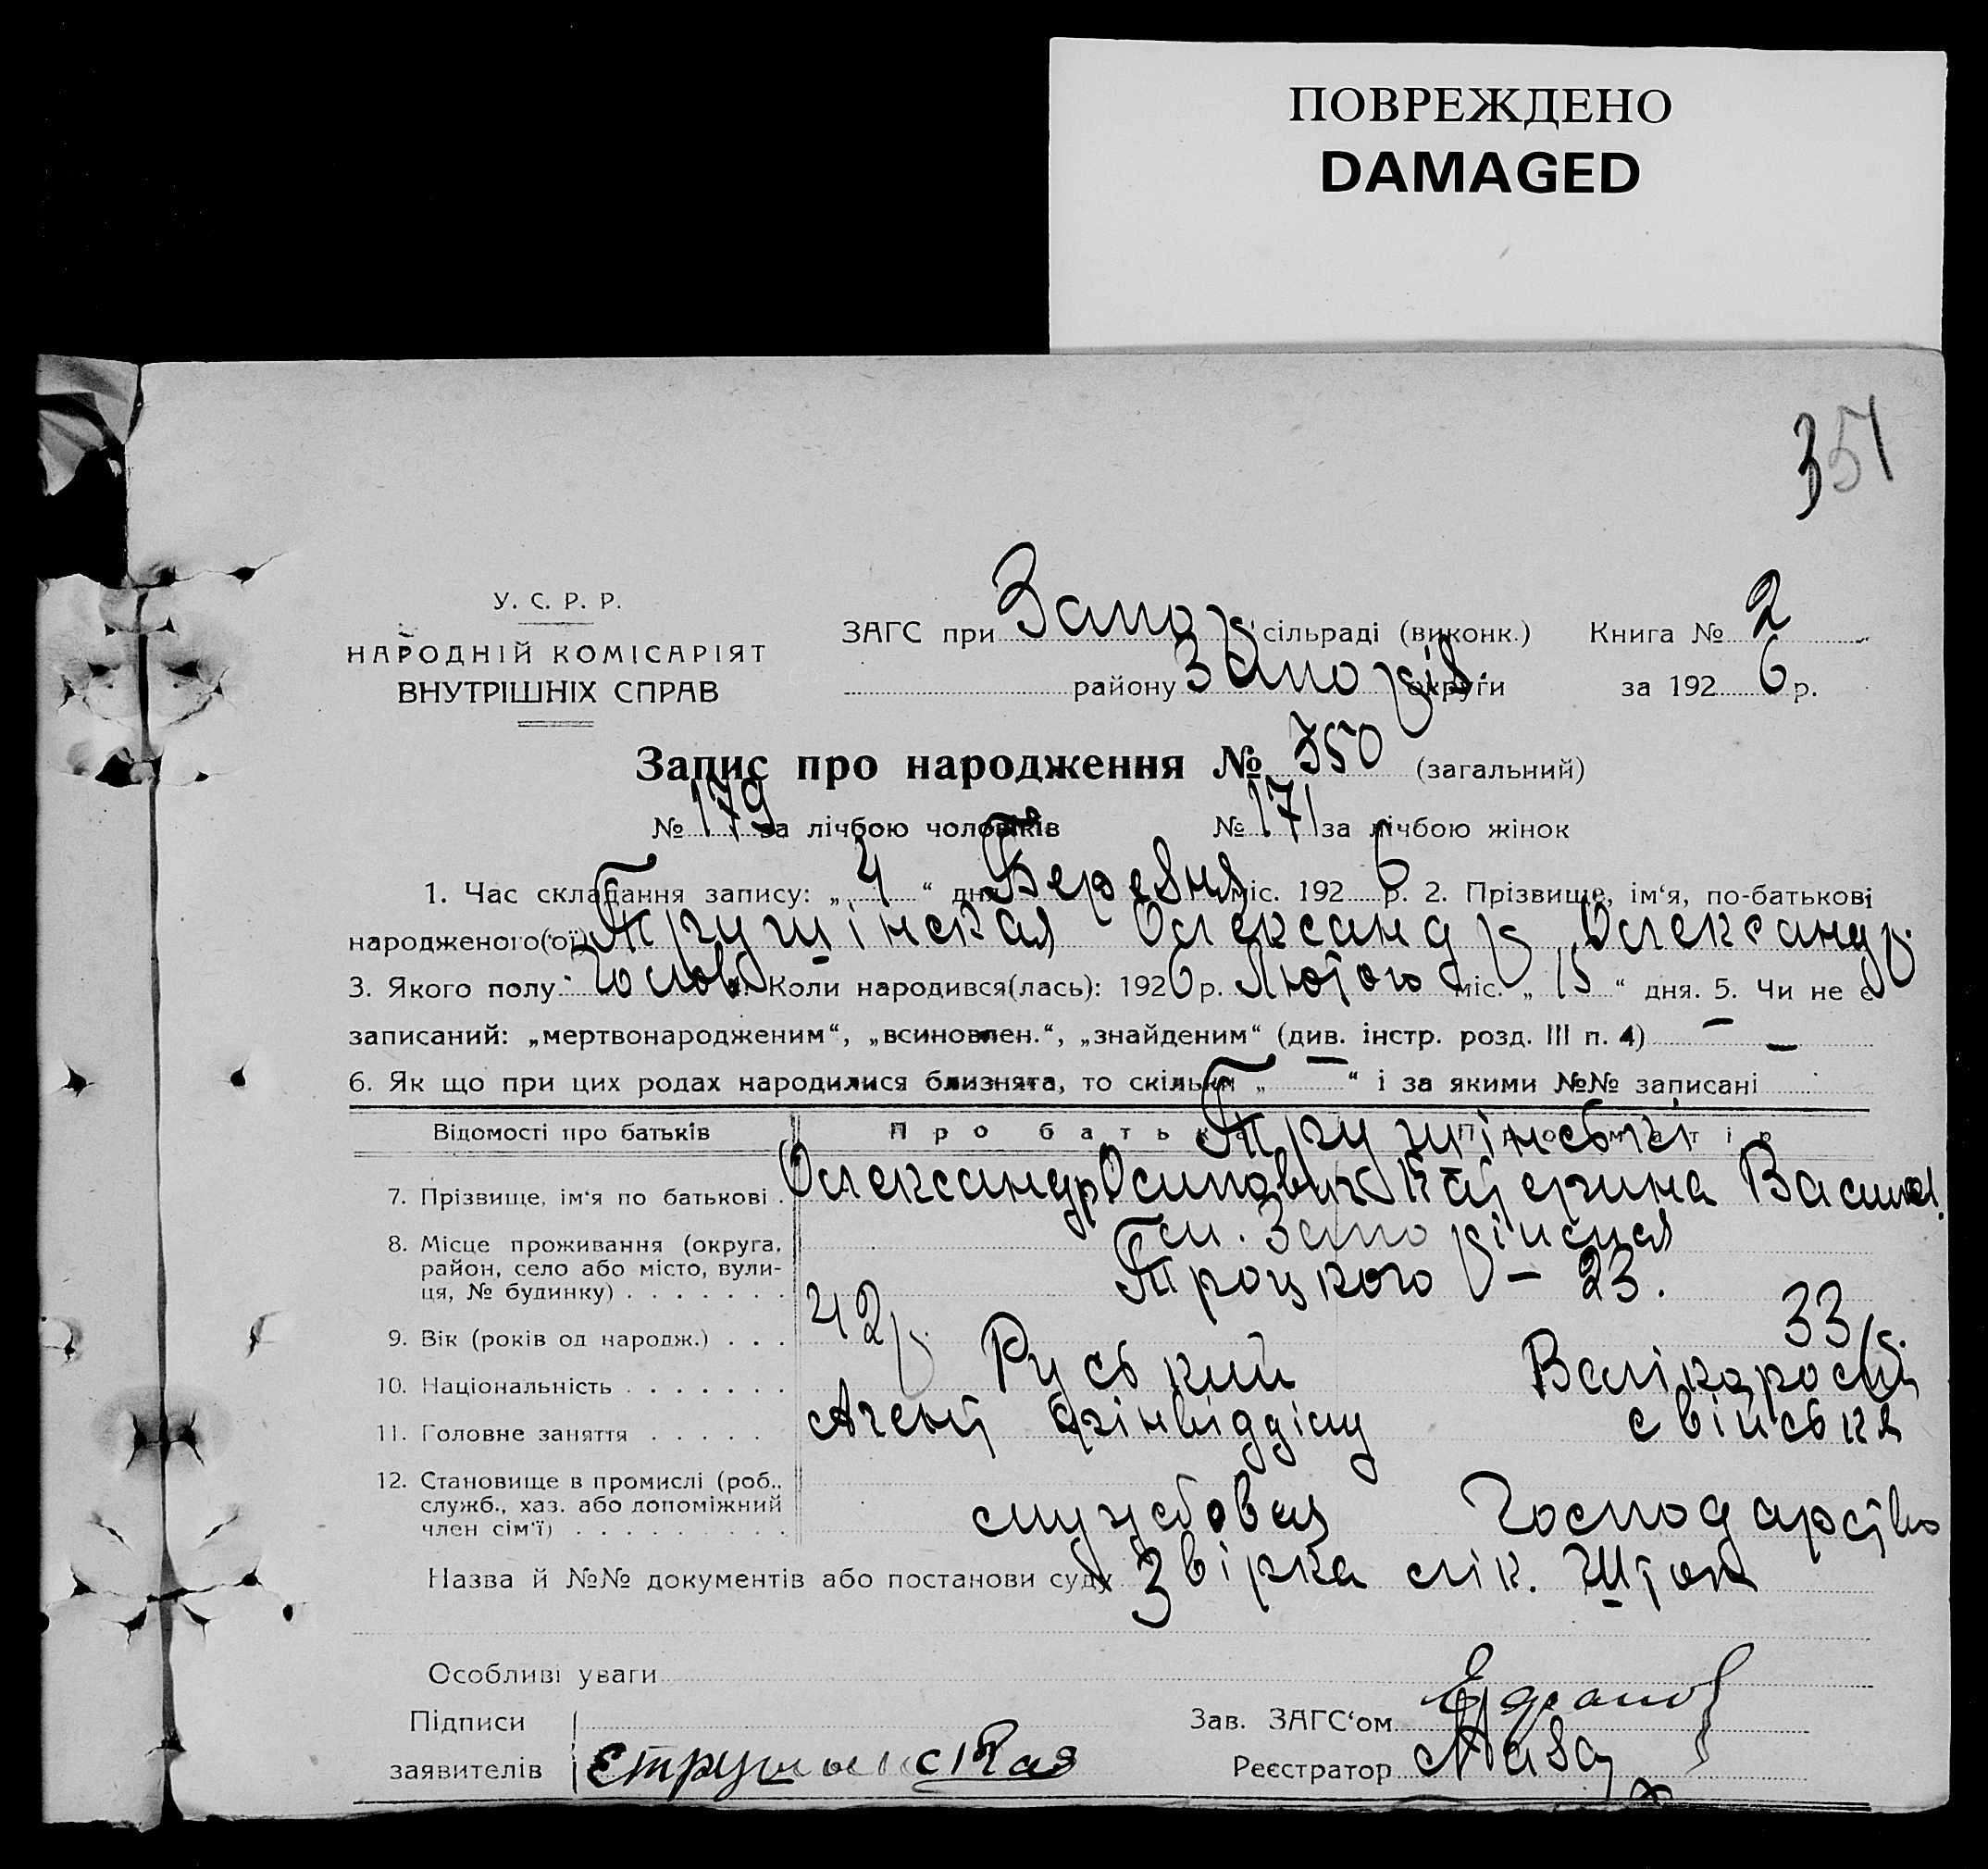 ПОВРЕЖДЕНО
DAMAGED
351
У. С. Р. Р.
НАРОДНІЙ КОМІСАРІЯТ
ВНУТРІШНІХ СПРАВ
ЗАГС при Запор сільраді (виконк.) Книга № 2
району Запоріз. округи за 1926 р.
Запис про народження № 350 (загальний)
№ 179 за лічбою чоловіків № 171 за лічбою жінок
1. Час складання запису: „4“ дня Березня міс. 1926 р. 2. Прізвище, ім‘я, по-батькові
народженого(ої) Трушінская Олександр Олександр.
3. Якого полу Чолов 4. Коли народився(лась): 1926 р. Лютого міс. „15“ дня. 5. Чи не є
записаний: „мертвонародженим“, „всиновлен.“, „знайденим“ (див. інстр. розд. III п. 4) — —
6. Як що при цих родах народилися близнята, то скільки „—“ і за якими №№ записані
Відомості про батьків Про батька Про матір
Трушінські
7. Прізвище, ім‘я по батькові Олександр Осипович Катерина Василів.
8. Місце проживання (округа, район, село або місто, вулиця, № будинку) ст. Запоріжжя
Троцкого — 23.
9. Вік (років од народж.) 42 р. 33 р.
10. Національність Руський Велікорос
11. Головне заняття Агент фінвідділу свійське
12. Становище в промислі (роб., служб., хаз. або допоміжний член сім‘ї) службовая Господарство
Назва й №№ документів або постанови суду Звірка лік.
Особливі уваги
Підписи
заявителів Етрушинская
Зав. ЗАГС‘ом
Реєстратор